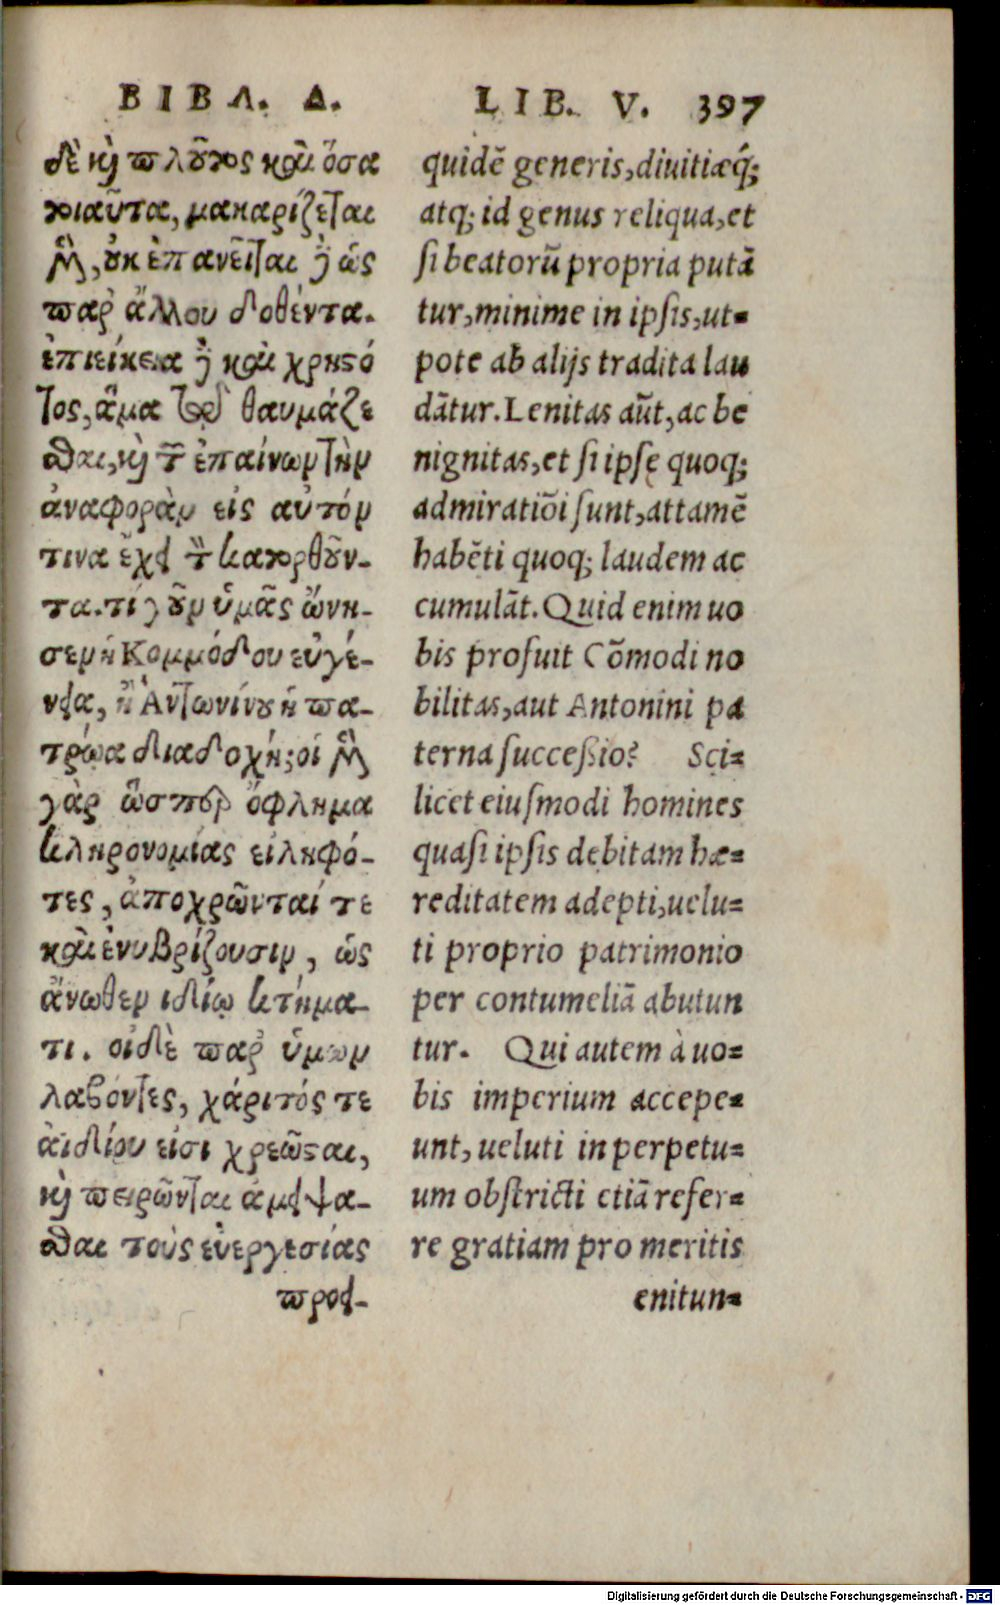 ΒΙΒΛ. Δ.
δὲ καὶ πλοῦτος καὶ ὅσα
τοιαῦτα, μακαρίζεται
μὲν, οὐκ ἐπαινεῖται δὲ ὡς
παρ᾽ ἄλλου δοθέντα.
ἐπιείκεια δὲ καὶ χρηστό
τος, ἅμα τῷ θαυμάζε
σθαι, καὶ τῶν ἐπαίνων τὴν
ἀναφορὰν εἰς αὐτόν
τινα ἔχει τὸν κατορθοῦν-
τα. τί γοῦν ὑμᾶς ὤνη-
σεν ἡ Κομμόδου εὐγέ-
νεια, ἢ Ἀντωνίνου ἡ πα-
τρῴα διαδοχή; οἱ μὲν
γὰρ ὥσπερ ὄφλημα
κληρονομίας εἰληφό-
τες, ἀποχρῶνταί τε
καὶ ἐνυβρίζουσιν, ὡς
ἄνωθεν ἰδίῳ κτήμα-
τι. οἱ δὲ παρ᾽ ὑμῶν
λαβόντες, χάριτός τε
ἀϊδίου εἰσι χρεῶσται,
καὶ πειρῶνται ἀμείψα-
σθαι τοὺς εὐεργεσίας
προει-
LIB. V. 397
quidē generis, diuitiæq́;
atq; id genus reliqua, et
ſi beatorū propria putā
tur, minime in ipſis, ut=
pote ab alijs tradita lau
dātur. Lenitas aūt, ac be
nignitas, et ſi ipſę quoq;
admiratiōi ſunt, attamē
habēti quoq; laudem ac
cumulāt. Quid enim uo
bis profuit Cōmodi no
bilitas, aut Antonini pa
terna ſucceſsio? Sci=
licet eiuſmodi homines
quaſi ipſis debitam hæ=
reditatem adepti, uelu=
ti proprio patrimonio
per contumeliā abutun
tur. Qui autem à uo=
bis imperium accepe=
unt, ueluti in perpetu=
um obſtricti etiā refer=
re gratiam pro meritis
enitun=
Digitalisierung gefördert durch die Deutsche Forschungsgemeinschaft - DFG